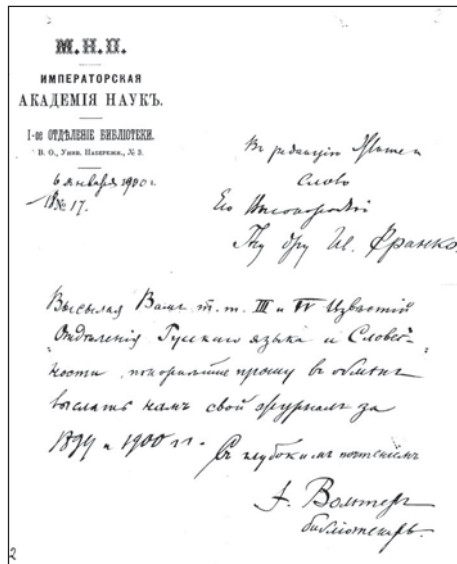 М. Н. П.
ИМПЕРАТОРСКАЯ
АКАДЕМІЯ НАУКЪ.
I-ое ОТДѢЛЕНІЕ БИБЛІОТЕКИ.
В. О., Унив. Набережн., № 3.
6 января 1900 г.
№ 17.
Въ редакцію
Слово
Его Высокородію
Гну дру Ив. Франко.
Высылая Вамъ т. т. III и IV Извѣстій
Отдѣленія Русскаго языка и Словес-
ности, покорнѣйше прошу въ обмѣнъ
выслать намъ свой журналъ за
1899 и 1900 гг.
Съ глубокимъ почтеніемъ
Э. Вольтеръ
библіотекарь.
2